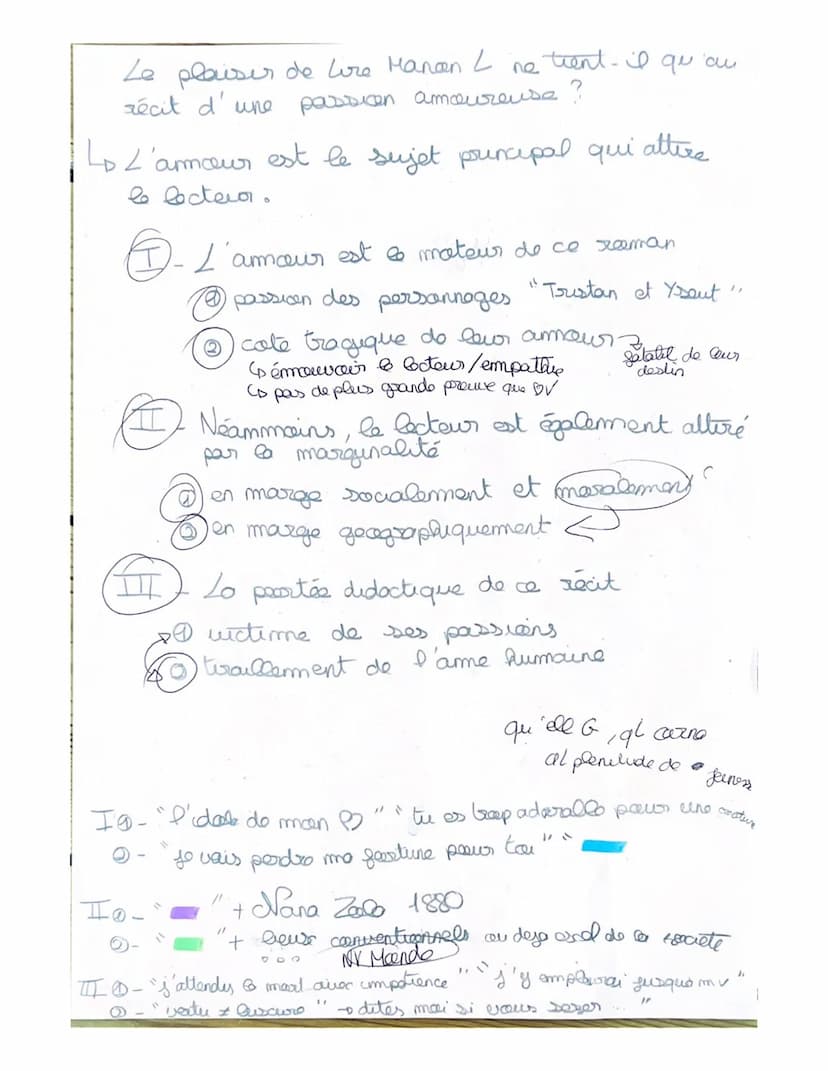 Le plaisir de lire Manon L ne tient-il qu'au
récit d'une passion amoureuse ?
↳ L'amour est le sujet principal qui attire
le lecteur.
I - L'amour est le moteur de ce roman
① passion des personnages "Tristan et Yseut"
② coté tragique de leur amour → fatalité de leur destin
↳ émouvoir le lecteur/empathie
↳ pas de plus grande preuve que ♡V
II - Néammoins, le lecteur est également attiré
par la marginalité
① en marge socialement et moralement
② en marge geographiquement
III - La portée didactique de ce récit
① victime de ses passions
② tiraillement de l'ame humaine
qu'elle G, ql
al plenitude de
I ① - "l'idole de mon ♡" "tu es trop adorable pour une
② - "je vais perdre ma fortune pour toi" "
II ① - " " + Nana Zola 1880
② - " " + lieux conventionnels ou de la société
NV Monde
III ① - "j'attendis le mal avec impatience" "j'y emploirai jusqua mv"
② - "vertu ≠ luxure" → dites moi si vous ..."